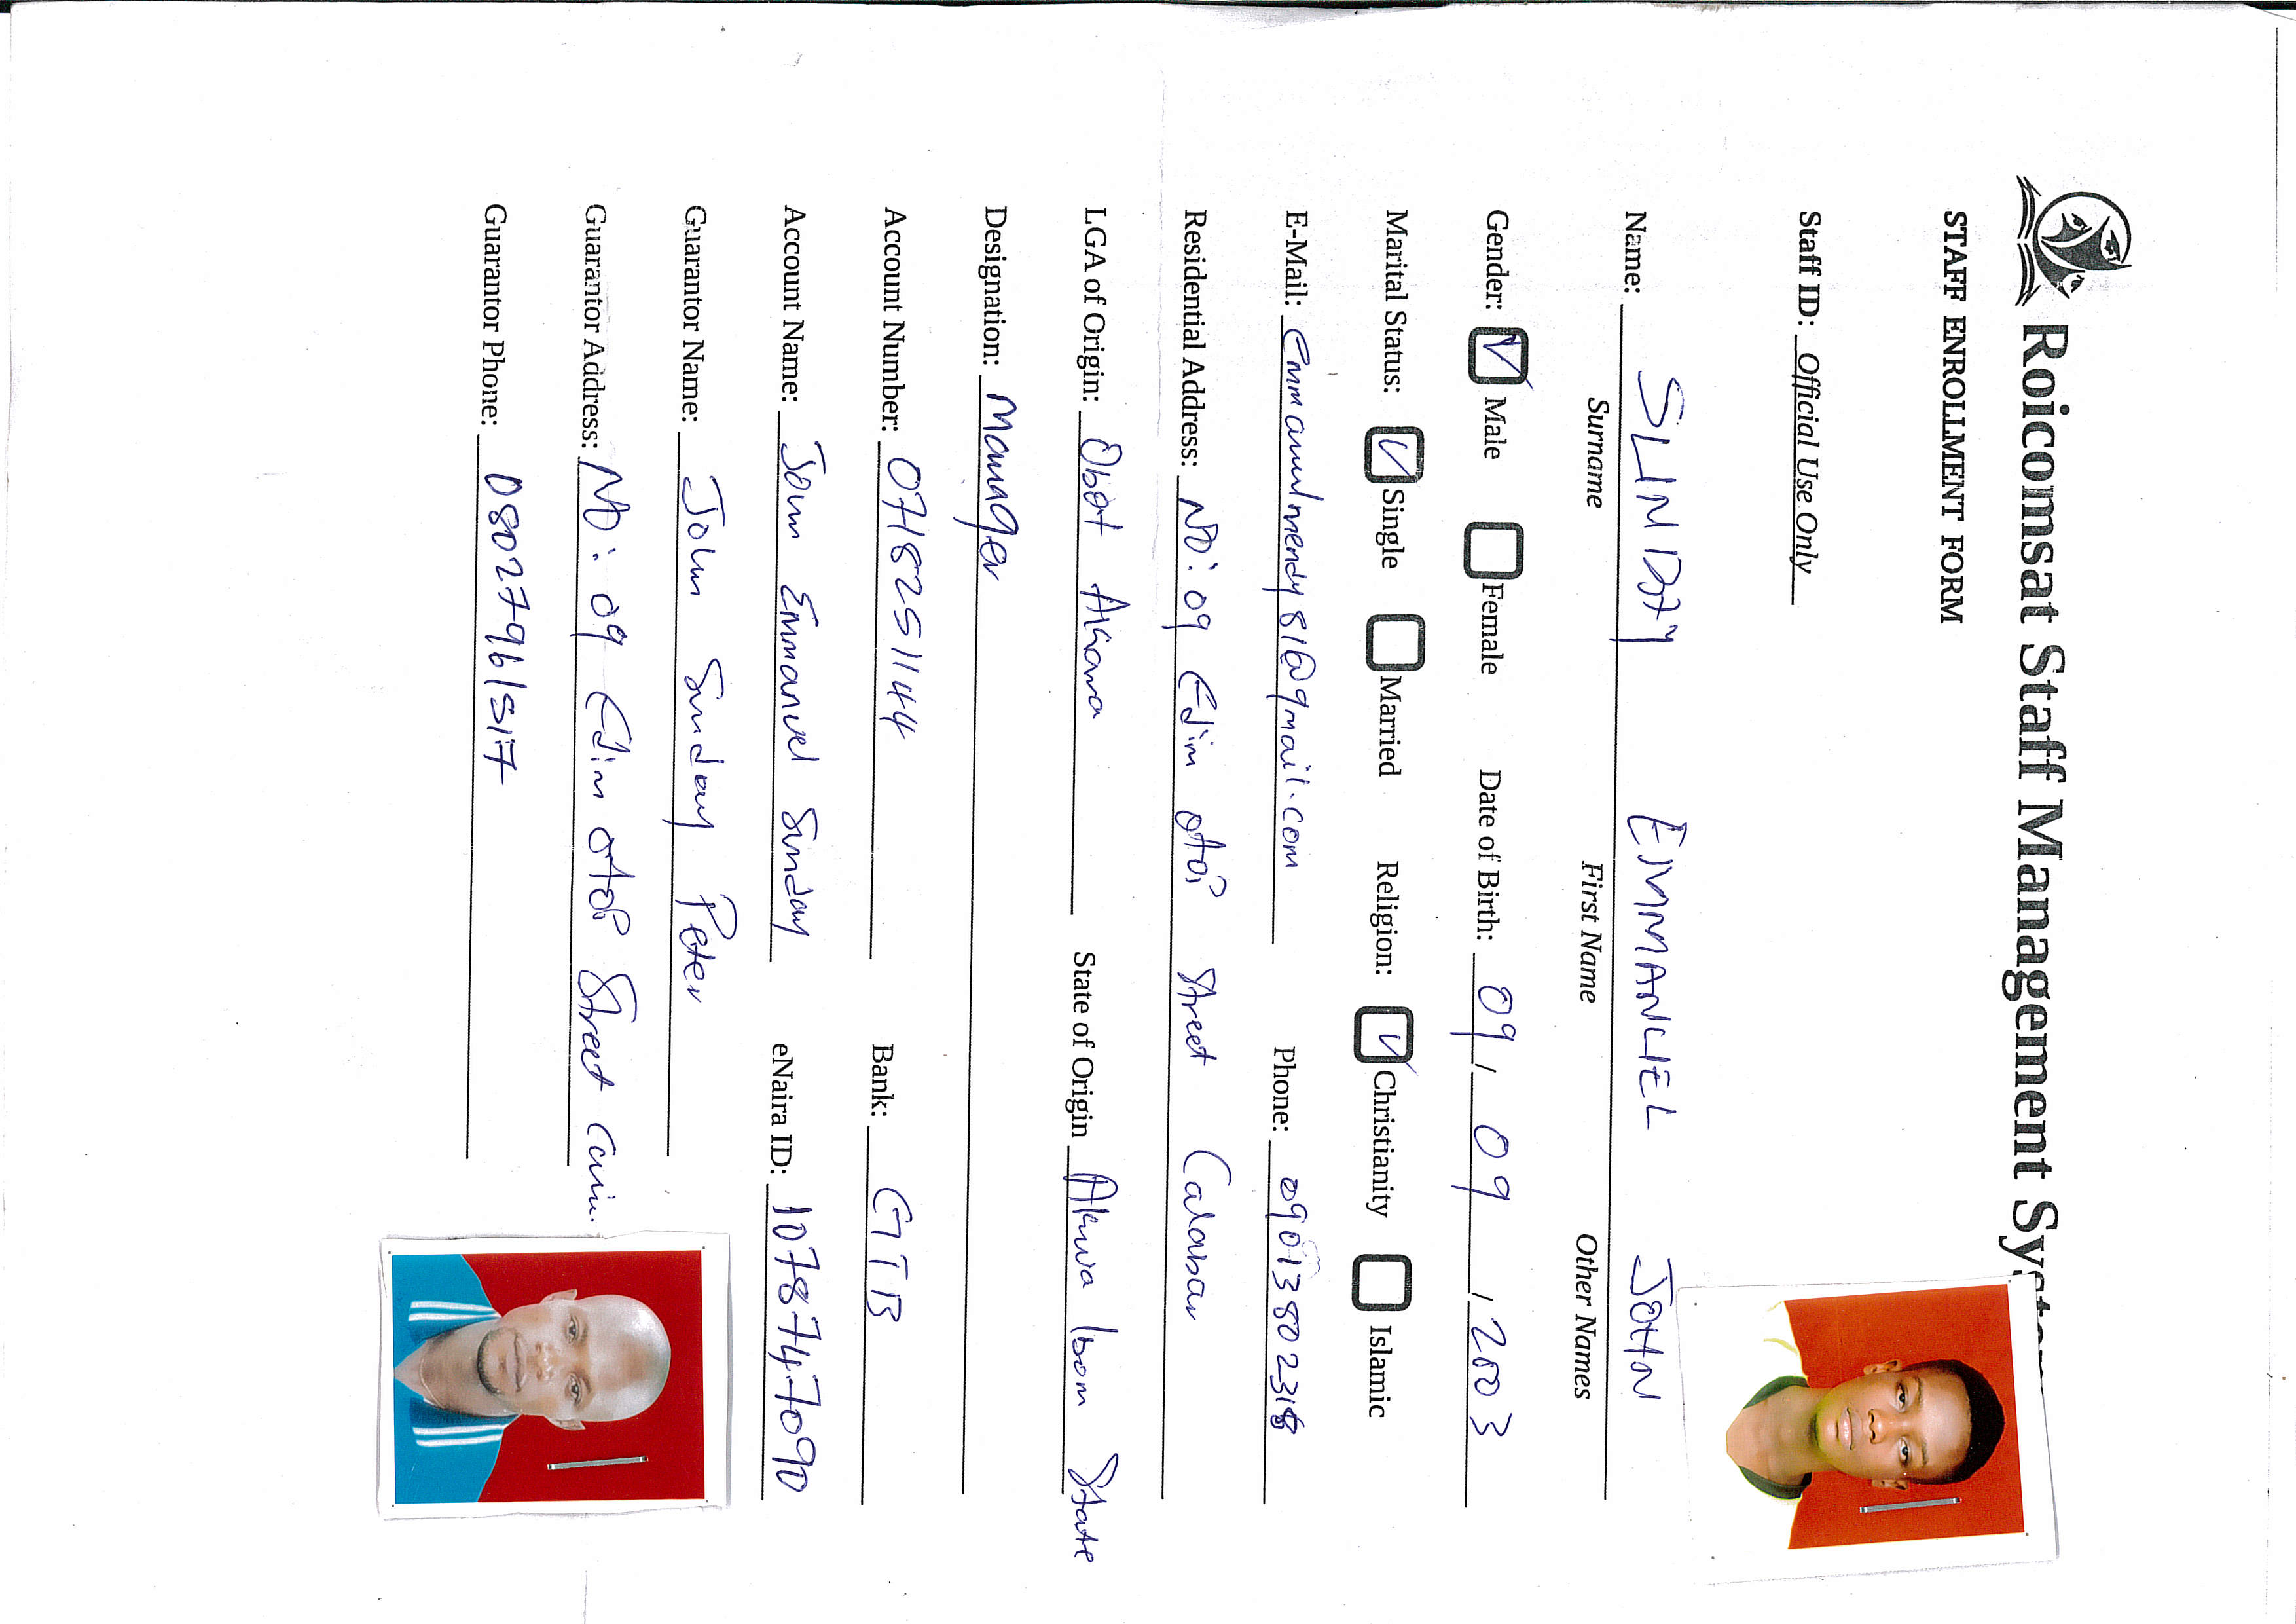 Roicomsat Staff Management Syste
STAFF ENROLLMENT FORM
Staff ID: Official Use Only
Name: SUNDAY EMMANUEL JOHN
Surname First Name Other Names
Gender: Male Female Date of Birth: 09 / 09 / 2003
Marital Status: Single Married Religion: Christianity Islamic
E-Mail: Phone:
Residential Address: NO: 09 Edim otoi Street Calabar
LGA of Origin: Obot Akara State of Origin Akwa Ibom State
Designation: Manager
Account Number: 0718251144 Bank: GTB
Account Name: John Emmanuel Sunday eNaira ID: 10787474090
Guarantor Name: John Sunday Peter
Guarantor Address: NO: 09 Edim otop Street
Guarantor Phone: 08027961517